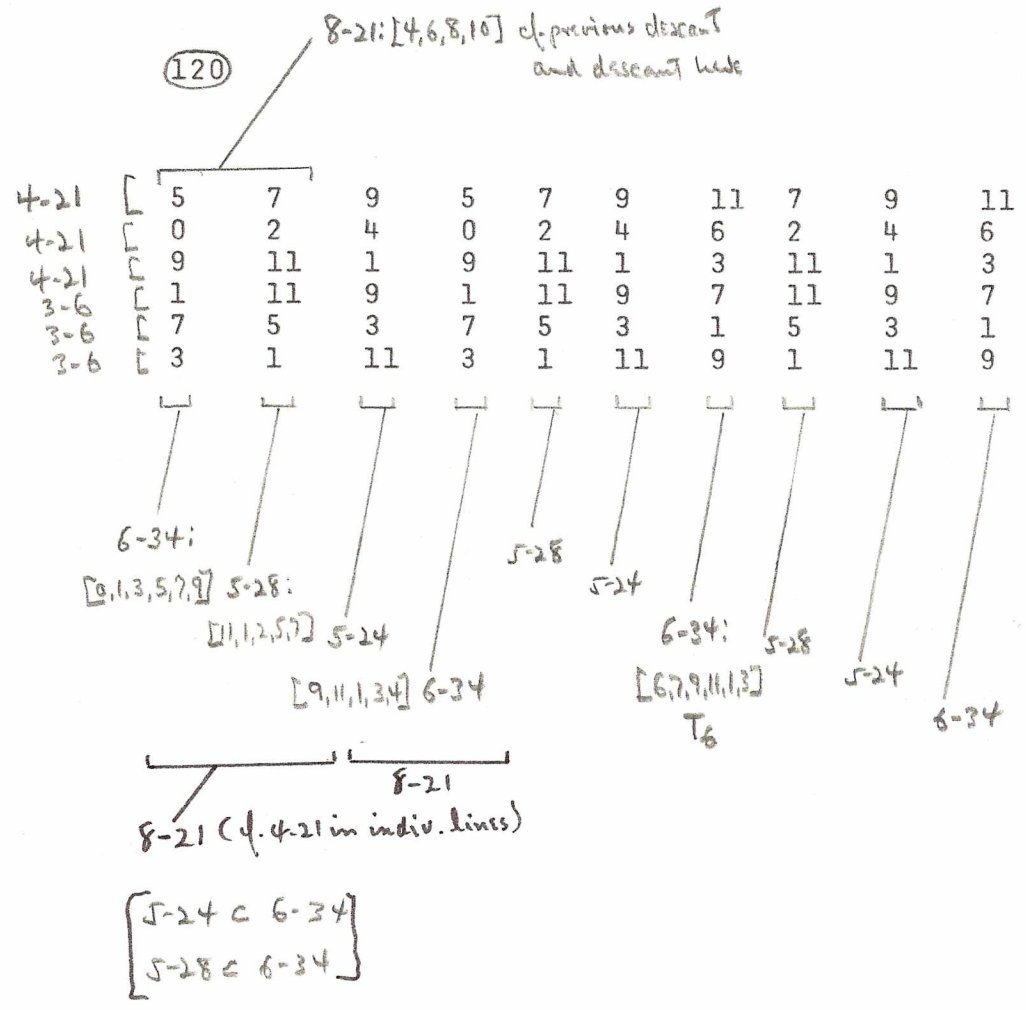 8-21: [4,6,8,10] cf. previous descant
and descant here
120
4-21 [ 5 7 9 5 7 9 11 7 9 11
4-21 [ 0 2 4 0 2 4 6 2 4 6
4-21 [ 9 11 1 9 11 1 3 11 1 3
3-6 [ 1 11 9 1 11 9 7 11 9 7
3-6 [ 7 5 3 7 5 3 1 5 3 1
3-6 [ 3 1 11 3 1 11 9 1 11 9
6-34:
[0,1,3,5,7,9]
5-28:
[11,1,2,5,7]
5-24
[9,11,1,3,4]
6-34
5-28
5-24
6-34:
[6,7,9,11,1,3]
T6
5-28
5-24
6-34
8-21
8-21 (cf. 4-21 in indiv. lines)
[5-24 ⊂ 6-34
5-28 ⊂ 6-34]